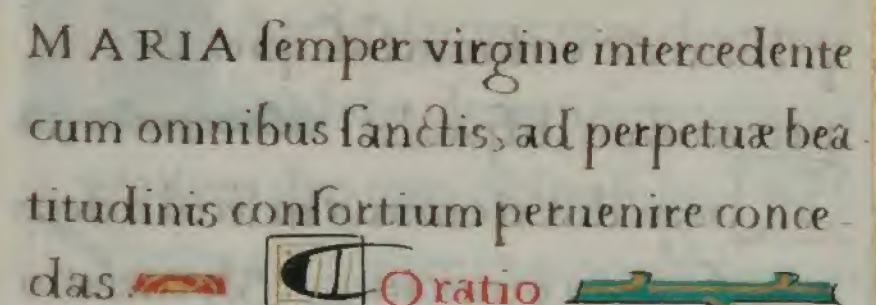 MARIA ſemper virgine intercedente
cum omnibus ſanctis, ad perpetuæ bea-
titudinis conſortium peruenire conce-
das. ¶ Oratio